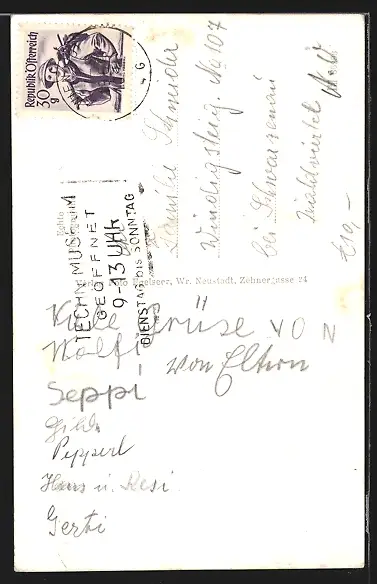 Republik Österreich
30 g
TECHN. MUSEUM
GEÖFFNET
9-13 UHR
DIENSTAG BIS SONNTAG
Familie Schneider
Windigsteig. No 107
bei Schwarzenau
Waldviertel
N.Ö.
Wr. Neustadt, Zehnergasse 24
Viele Grüse von
Wolfi
von Eltern
Seppi
Pepperl
Hans u. Resi
Gerti